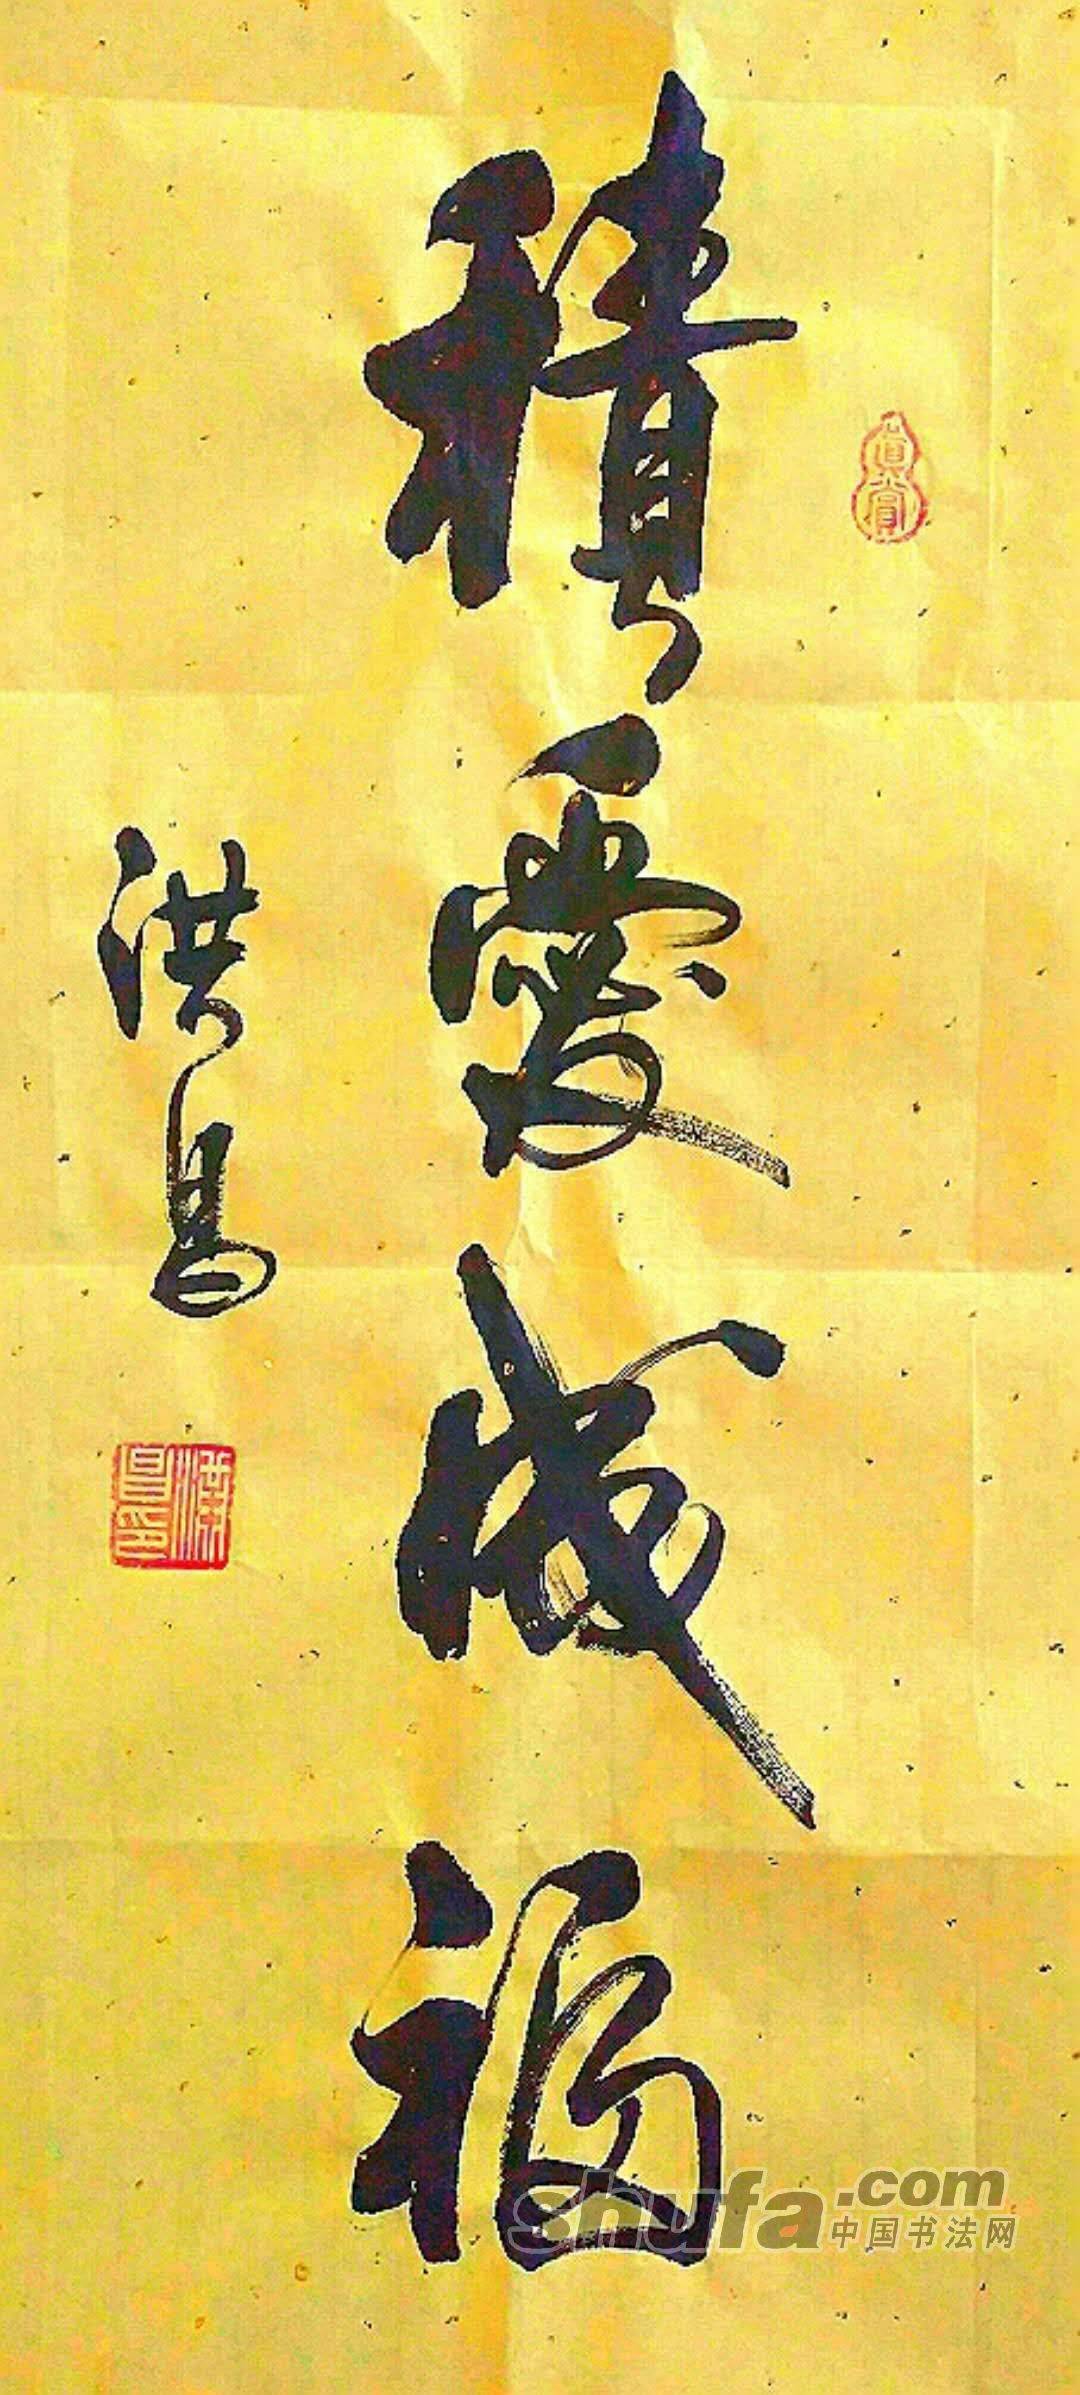 積愛成福
洪昌
shufa.com
中国书法网